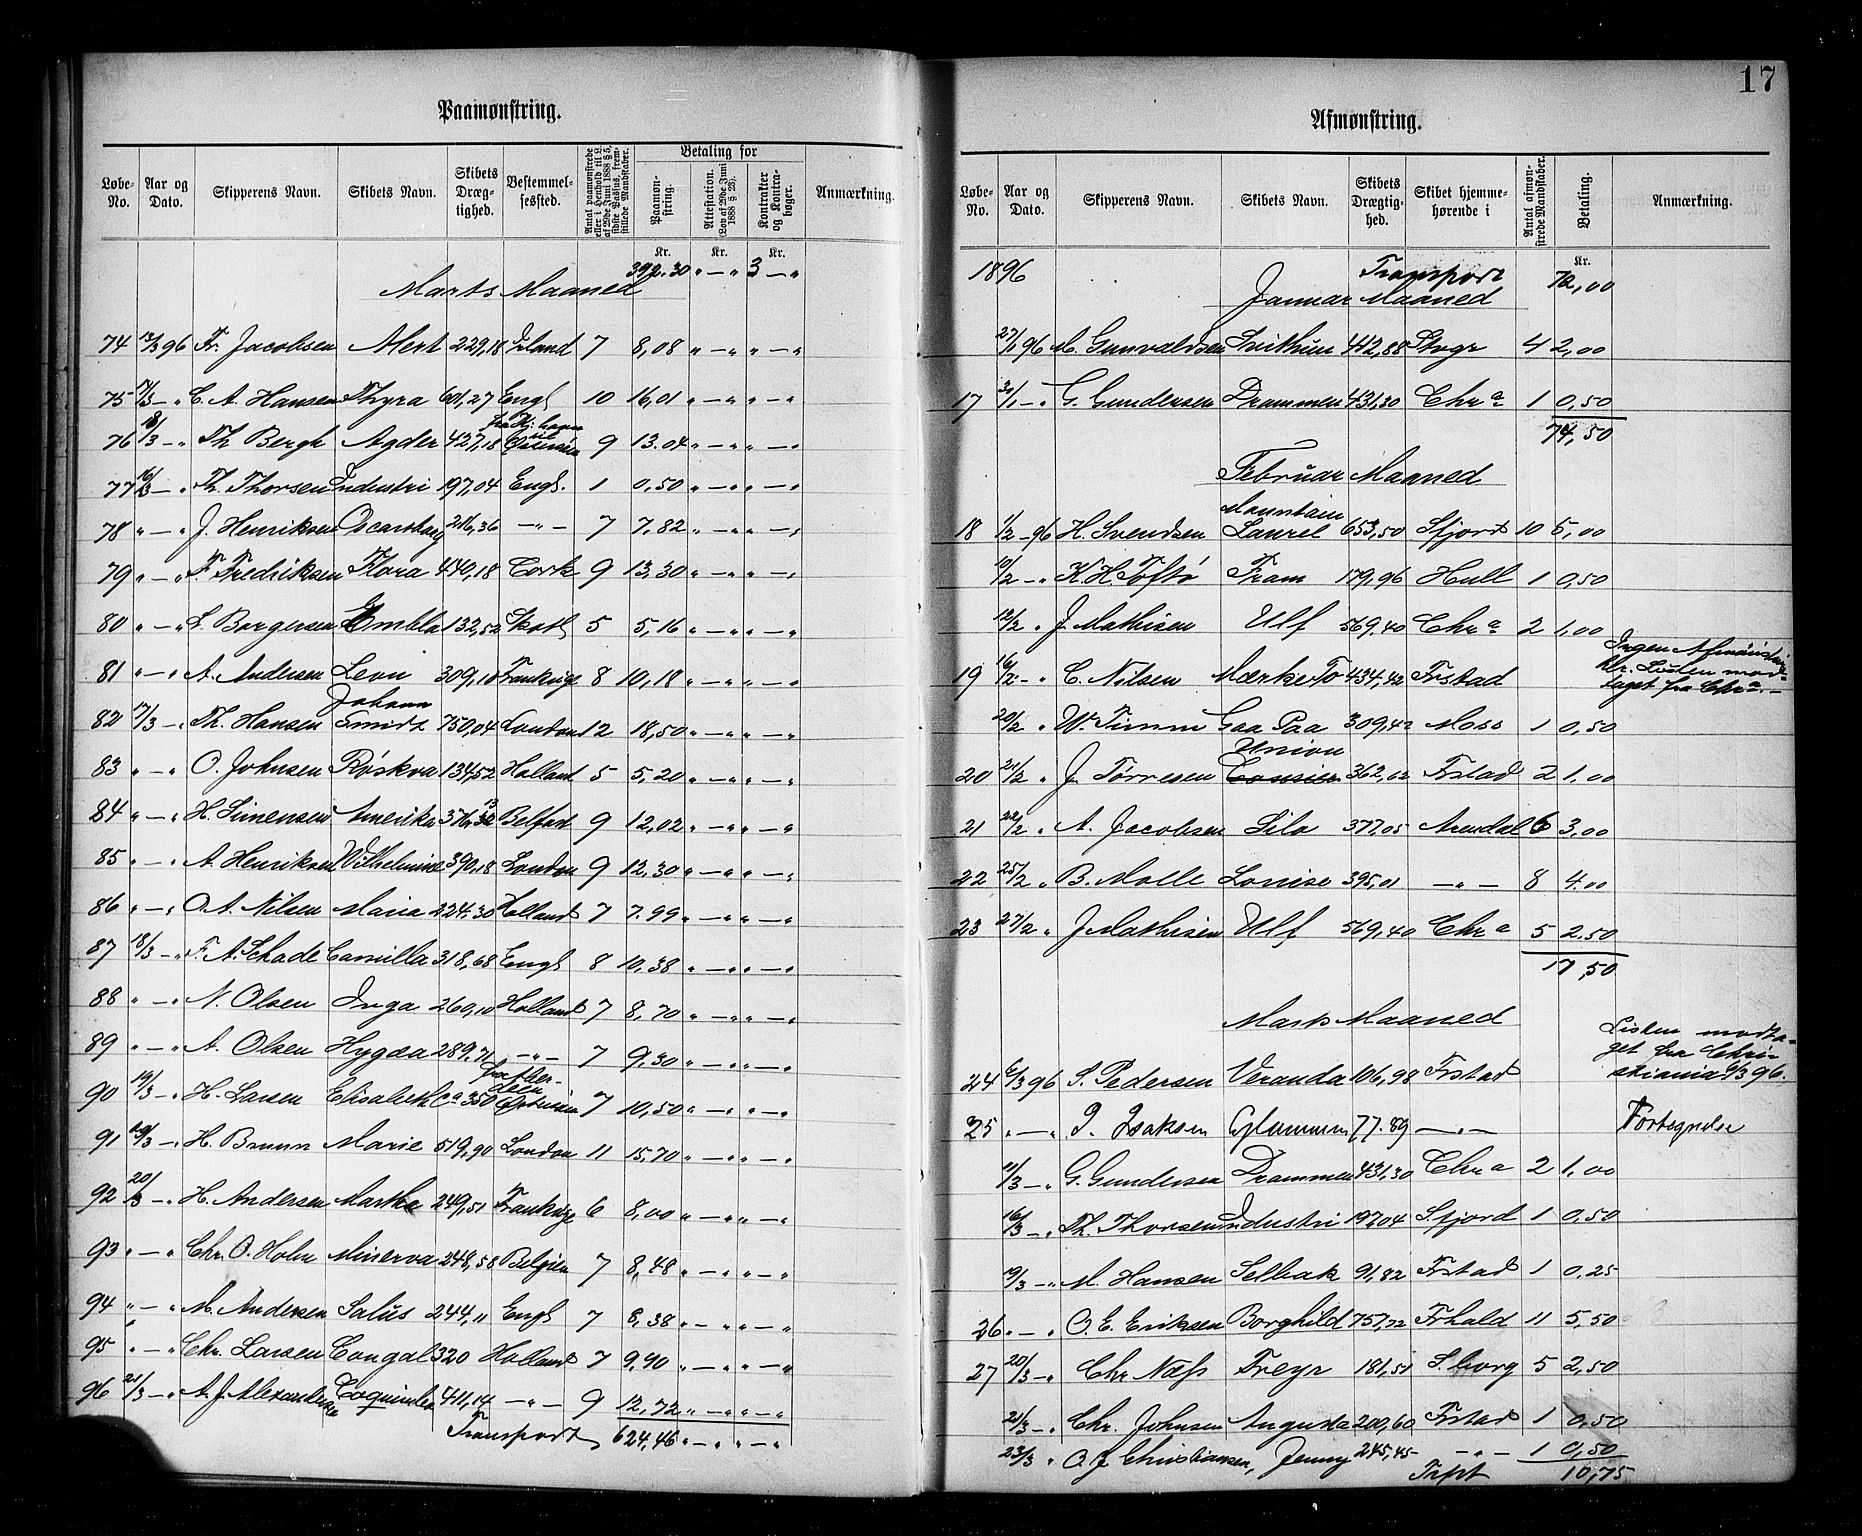 Paamønstring.
Løbe-No. Aar og Dato. Skipperens Navn. Skibets Navn. Skibets Dræg-tighed. Bestemmel-sessted. Antal paamønstrede eller i Henhold til L. af 29de Juni 1888 § 5, sidste Passus, frem-stillede Mandskaber. Betaling for Paamøn-string. Attestation. (Lov af 29de Juni 1888 § 23). Kontrakter og Kontra-bøger. Anmærkning.
Kr. Kr. Kr.
392.30 " — " 3 — "
Marts Maaned
74 13/3 96 Fr. Jacobsen Alert 229,18 Irland 7 8,08 " — " " — "
75 14/3 — " C. A. Hansen Thyra 601,27 Engl 10 16,01 " — " " — "
76 18/3 — " Th Bergh Agder 427,18 9 13.04 " — " " — "
77 16/3 — " Th. Thorsen Industri 197,04 Engl. 1 0,50 " — " " — "
78 " — " J. Henriksen Oscarsborg 216,36 — " — 7 7,82 " — " " — "
79 " — " F. Fredriksen Flora 440,18 Cork 9 13,30 " — " " — "
80 " — " L. Borgersen Embla 132,52 Skotl 5 5,16 " — " " — "
81 " — " A. Andersen Leon 309,18 Frankrige 8 10,18 " — " " — "
82 17/3 — " Th. Hansen Johann Smidt 750,04 London 12 18,50 " — " " — "
83 " — " O. Johnsen Røskva 134,52 Holland 5 5,20 " — " " — "
84 " — " H. Simensen Amerika 376,32 13 Belfast 9 12,02 " — " " — "
85 " — " A. Henriksen Wilhelmine 390,18 London 9 12,30 " — " " — "
86 " — " O. A. Nilsen Maria 224,30 Holland 7 7.99 " — " " — "
87 18/3 — " F. A. Schade Camilla 318,68 Engl 8 10,38 " — " " — "
88 " — " N. Olsen Inga 260,10 Holland 7 8,70 " — " " — "
89 " — " A. Olsen Hygæa 289,71 — " — 7 9,30 " — " " — "
90 19/3 — " H. Larsen Elisabeth Ca 350 7 10,50 " — " " — "
91 19/3 — " H. Bruun Marie 519,90 London 11 15,70 " — " " — "
92 20/3 — " H. Andersen Martha 249,51 Frankrige 6 8,00 " — " " — "
93 " — " Chr. O. Holm Minerva 248,58 Belgien 7 8,48 " — " " — "
94 " — " M. Andersen Salus 244,11 Engl 7 8,38 " — " " — "
95 " — " Chr. Larsen Congal 320 Holland 7 9,40 " — " " — "
96 21/3 — " A. J. Alexandersen Coquimbo 411,14 — " — 9 12,72 " — " " — "
Transport 624,46 " — " " — "
17
Afmønstring.
Løbe-No. Aar og Dato. Skipperens Navn. Skibets Navn. Skibets Drægtig-hed. Skibet hjemme-hørende i Antal afmøn-strede Mandskaber. Betaling. Anmærkning.
Kr.
1896 Transport 72,00
Januar Maaned
27/1 96 M. Gunvaldsen Svithun 442,88 Stvgr 4 2,00
17 30/1 — " G. Gundersen Drammen 431,30 Chr a 1 0,50
74,50
Februar Maaned
18 1/2 — 96 H. Svendsen Mountain Laurel 653,50 Sfjord 10 5,00
10/2 — " K. H. Toftø Fram 179,96 Hull 1 0,50
12/2 " J. Mathisen Ulf 569,40 Chr a 2 1,00
19 16/2 — " C. Nilsen Mærke To 434,42 Frstad Ingen Afmønstring. Listen mod-taget fra Chr a. —
20/2 " W. Timm Gaa Paa 309,42 Moss 1 0,50
20 21/2 " J. Tørresen Union 362,62 Frstad 2 1,00
21 22/2 " A. Jacobsen Silo 377,05 Arendal 6 3,00
22 25/2 " B. Molle Lovise 395,01 — " — 8 4.00
23 27/2 " J. Mathisen Ulf 569,40 Chr a 5 2.50
17,50
Marts Maaned
24 6/3 96 S. Pedersen Veranda 106,98 Frstad Listen modta-get fra Chri-stiania 6/3 96.
25 " — " P. Isaksen Glommen 77.89 — " — Fortegnelse
11/3 — " G. Gundersen Drammen 431,30 Chr a 2 1,00
16/3 — " Th. Thorsen Industri 197,04 Sfjord 1 0,50
19/3 — " M. Hansen Selbak 91,82 Frstad 1 0,25
26 " — " O. E. Eriksen Borghild 757,72 Frhald 11 5,50
27 20/3 — " Chr Næss Freyr 181,51 S.borg 5 2,50
21/3 — " Chr. Johnsen Augusta 200,60 Frstad 1 0,50
23/3 " O. J. Christiansen, Jenny 245,45 — " — 1 0,50
Trspt 10,75